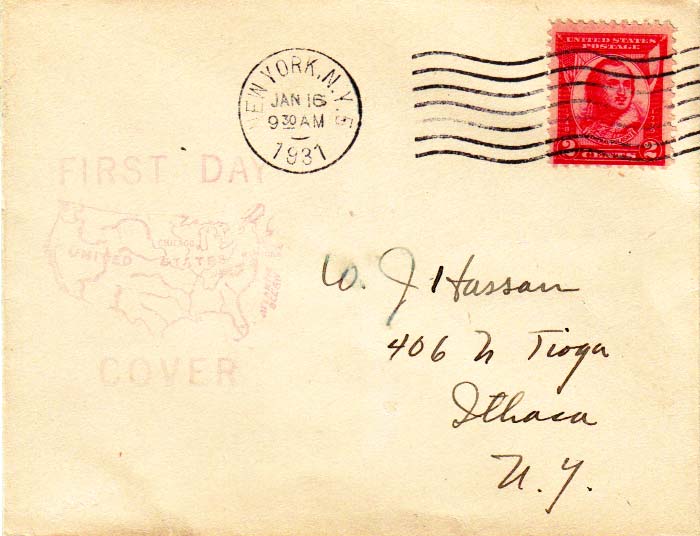 NEW YORK, N.Y. 5
JAN 16
9 30 AM
1931
UNITED STATES
POSTAGE
2 CENTS 2
FIRST DAY
CHICAGO
UNITED STATES
COVER
W. J Hassan
406 N Tioga
Ithaca
N. Y.